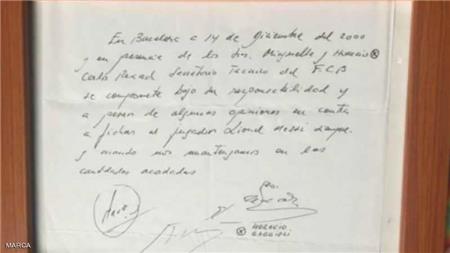 En Barcelona a 14 de diciembre del 2000
y en presencia de los Sres. Minguella y Horacio
Carles Rexach Secretario Tecnico del F.C.B
se compromete bajo su responsabilidad y
a pesar de algunas opiniones en contra
a fichar al jugador Lionel Messi siempre
y cuando nos mantengamos en las
cantidades acordadas
HORACIO
GAGGIOLI
MARCA